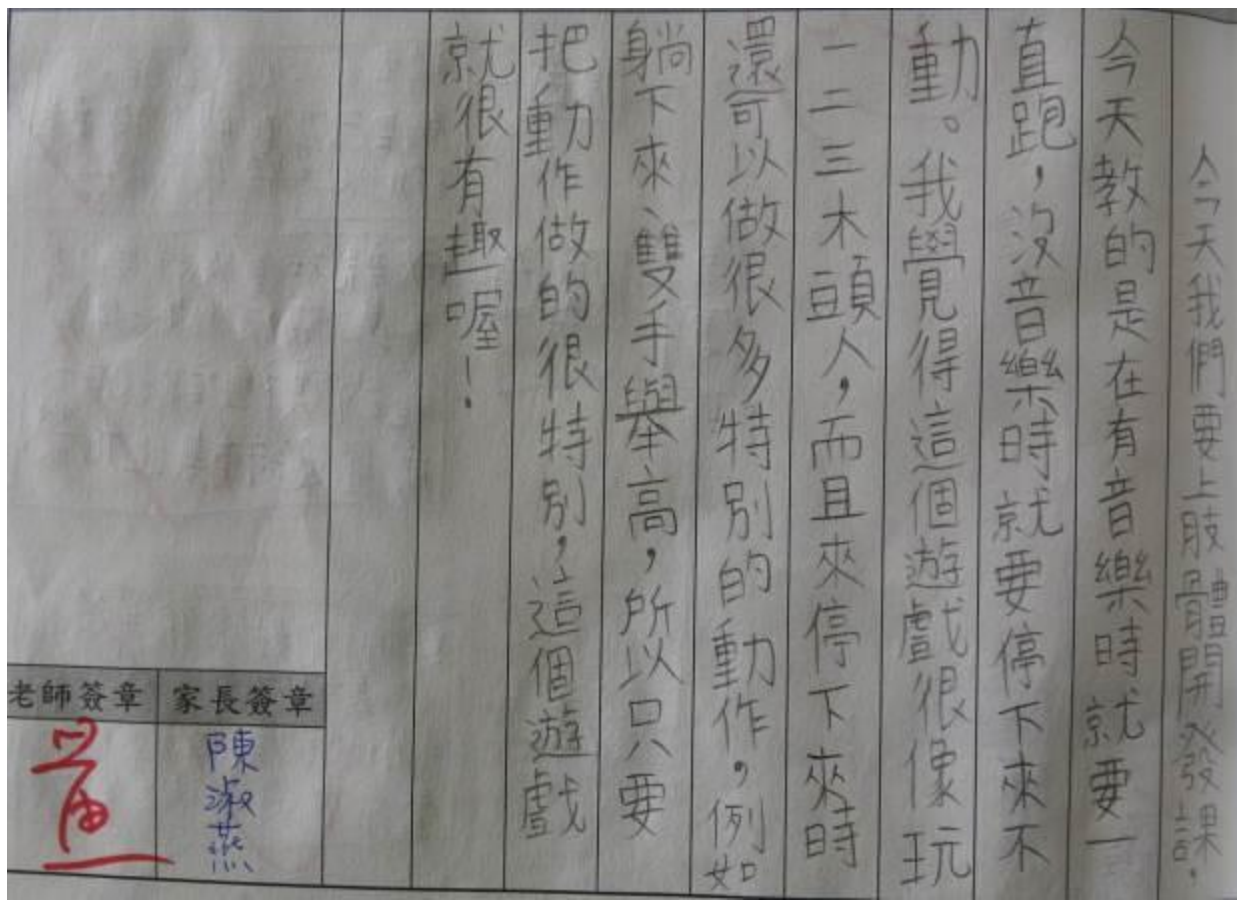 今天我們要上肢體開發課，
今天教的是在有音樂時就要一
直跑，沒音樂時就要停下來不
動。我覺得這個遊戲很像玩
一二三木頭人，而且來停下來時
還可以做很多特別的動作。例如
躺下來、雙手舉高，所以只要
把動作做的很特別，這個遊戲
就很有趣喔！
家長簽章
陳淑燕
老師簽章